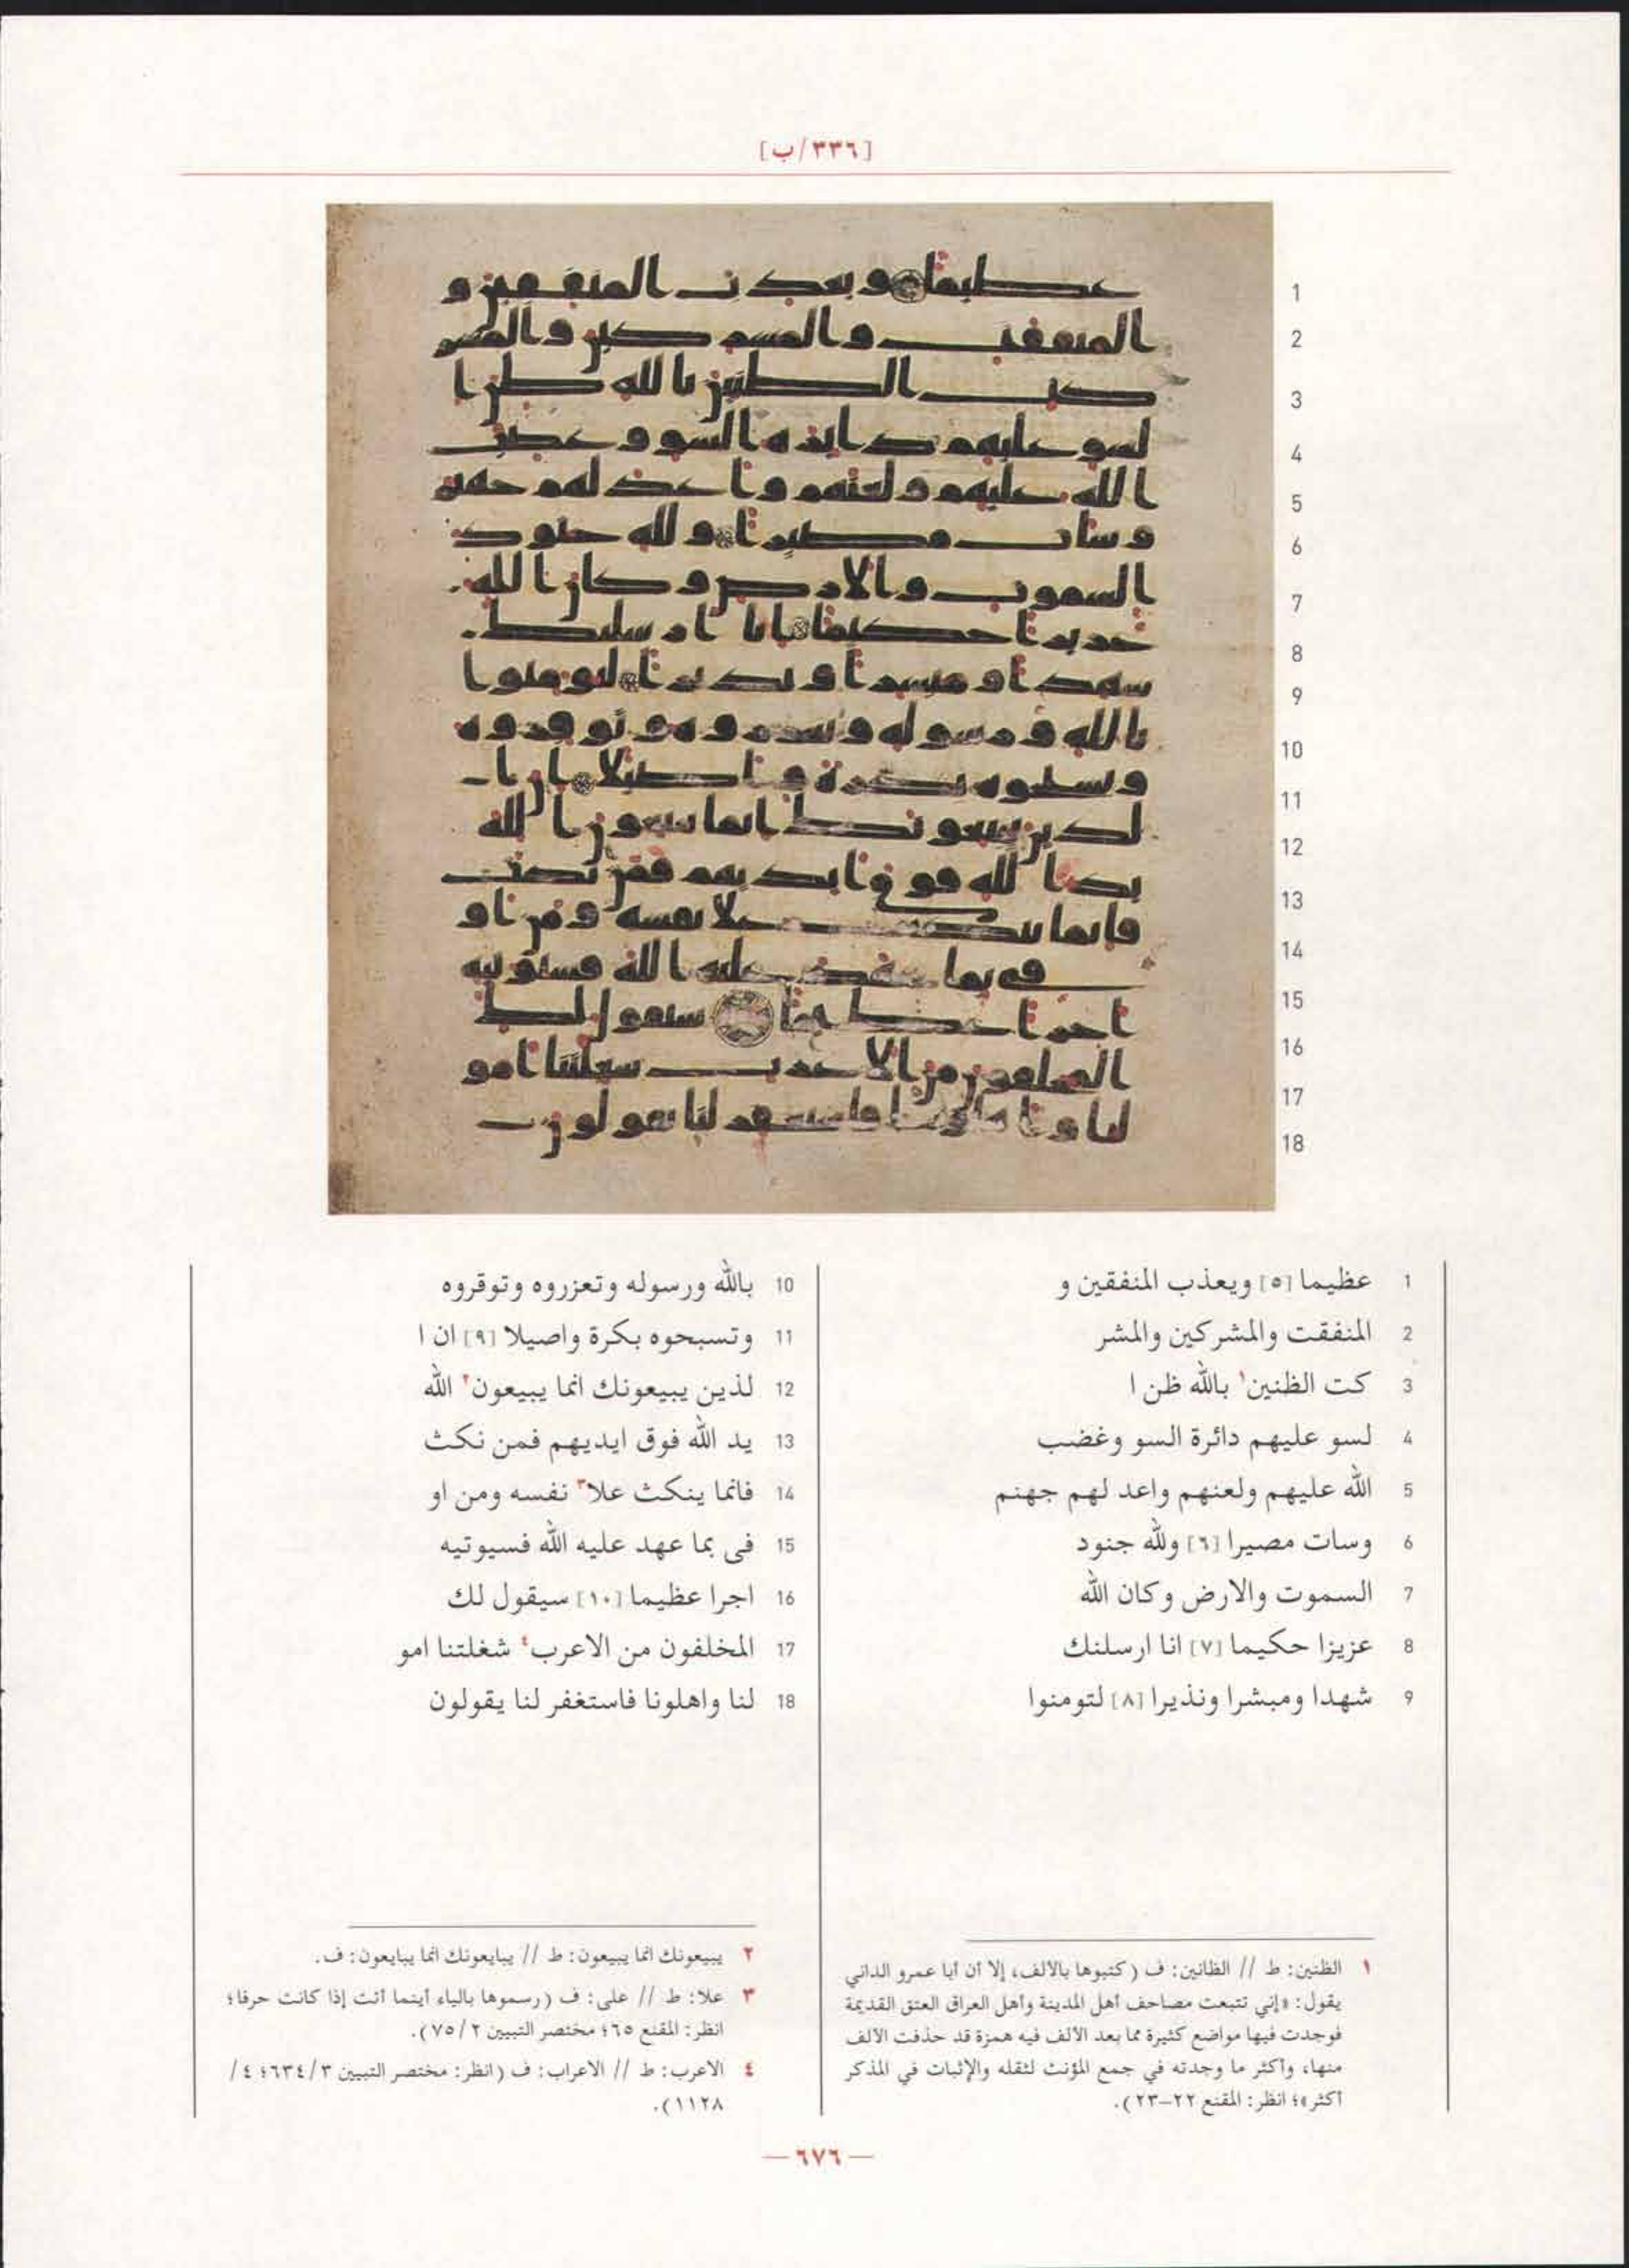 [٣٣٦/ب]
1
2
3
4
5
6
7
8
9
10
11
12
13
14
15
16
17
18
1 عظيما [٥] ويعذب المنفقين و
2 المنفقت والمشركين والمشر
3 كت الظنين١ بالله ظن ا
4 لسو عليهم دائرة السو وغضب
5 الله عليهم ولعنهم واعد لهم جهنم
6 وسات مصيرا [٦] ولله جنود
7 السموت والارض وكان الله
8 عزيزا حكيما [٧] انا ارسلنك
9 شهدا ومبشرا ونذيرا [٨] لتومنوا
10 بالله ورسوله وتعزروه وتوقروه
11 وتسبحوه بكرة واصيلا [٩] ان ا
12 لذين يبيعونك انما يبيعون٢ الله
13 يد الله فوق ايديهم فمن نكث
14 فانما ينكث علا٣ نفسه ومن او
15 فى بما عهد عليه الله فسيوتيه
16 اجرا عظيما [١٠] سيقول لك
17 المخلفون من الاعرب٤ شغلتنا امو
18 لنا واهلونا فاستغفر لنا يقولون
١ الظنين: ط // الظانين: ف (كتبوها بالألف، إلا أن أبا عمرو الداني
يقول: «إني تتبعت مصاحف أهل المدينة وأهل العراق العتق القديمة
فوجدت فيها مواضع كثيرة مما بعد الألف فيه همزة قد حذفت الألف
منها، وأكثر ما وجدته في جمع المؤنث لثقله والإثبات في المذكر
أكثر»؛ انظر: المقنع ٢٢–٢٣).
٢ يبيعونك انما يبيعون: ط // يبايعونك انما يبايعون: ف.
٣ علا: ط // على: ف (رسموها بالياء أينما أتت إذا كانت حرفا؛
انظر: المقنع ٦٥؛ مختصر التبيين ٧٥/٢).
٤ الاعرب: ط // الاعراب: ف (انظر: مختصر التبيين ٦٣٤/٣؛ ٤/
١١٢٨).
— ٦٧٦ —